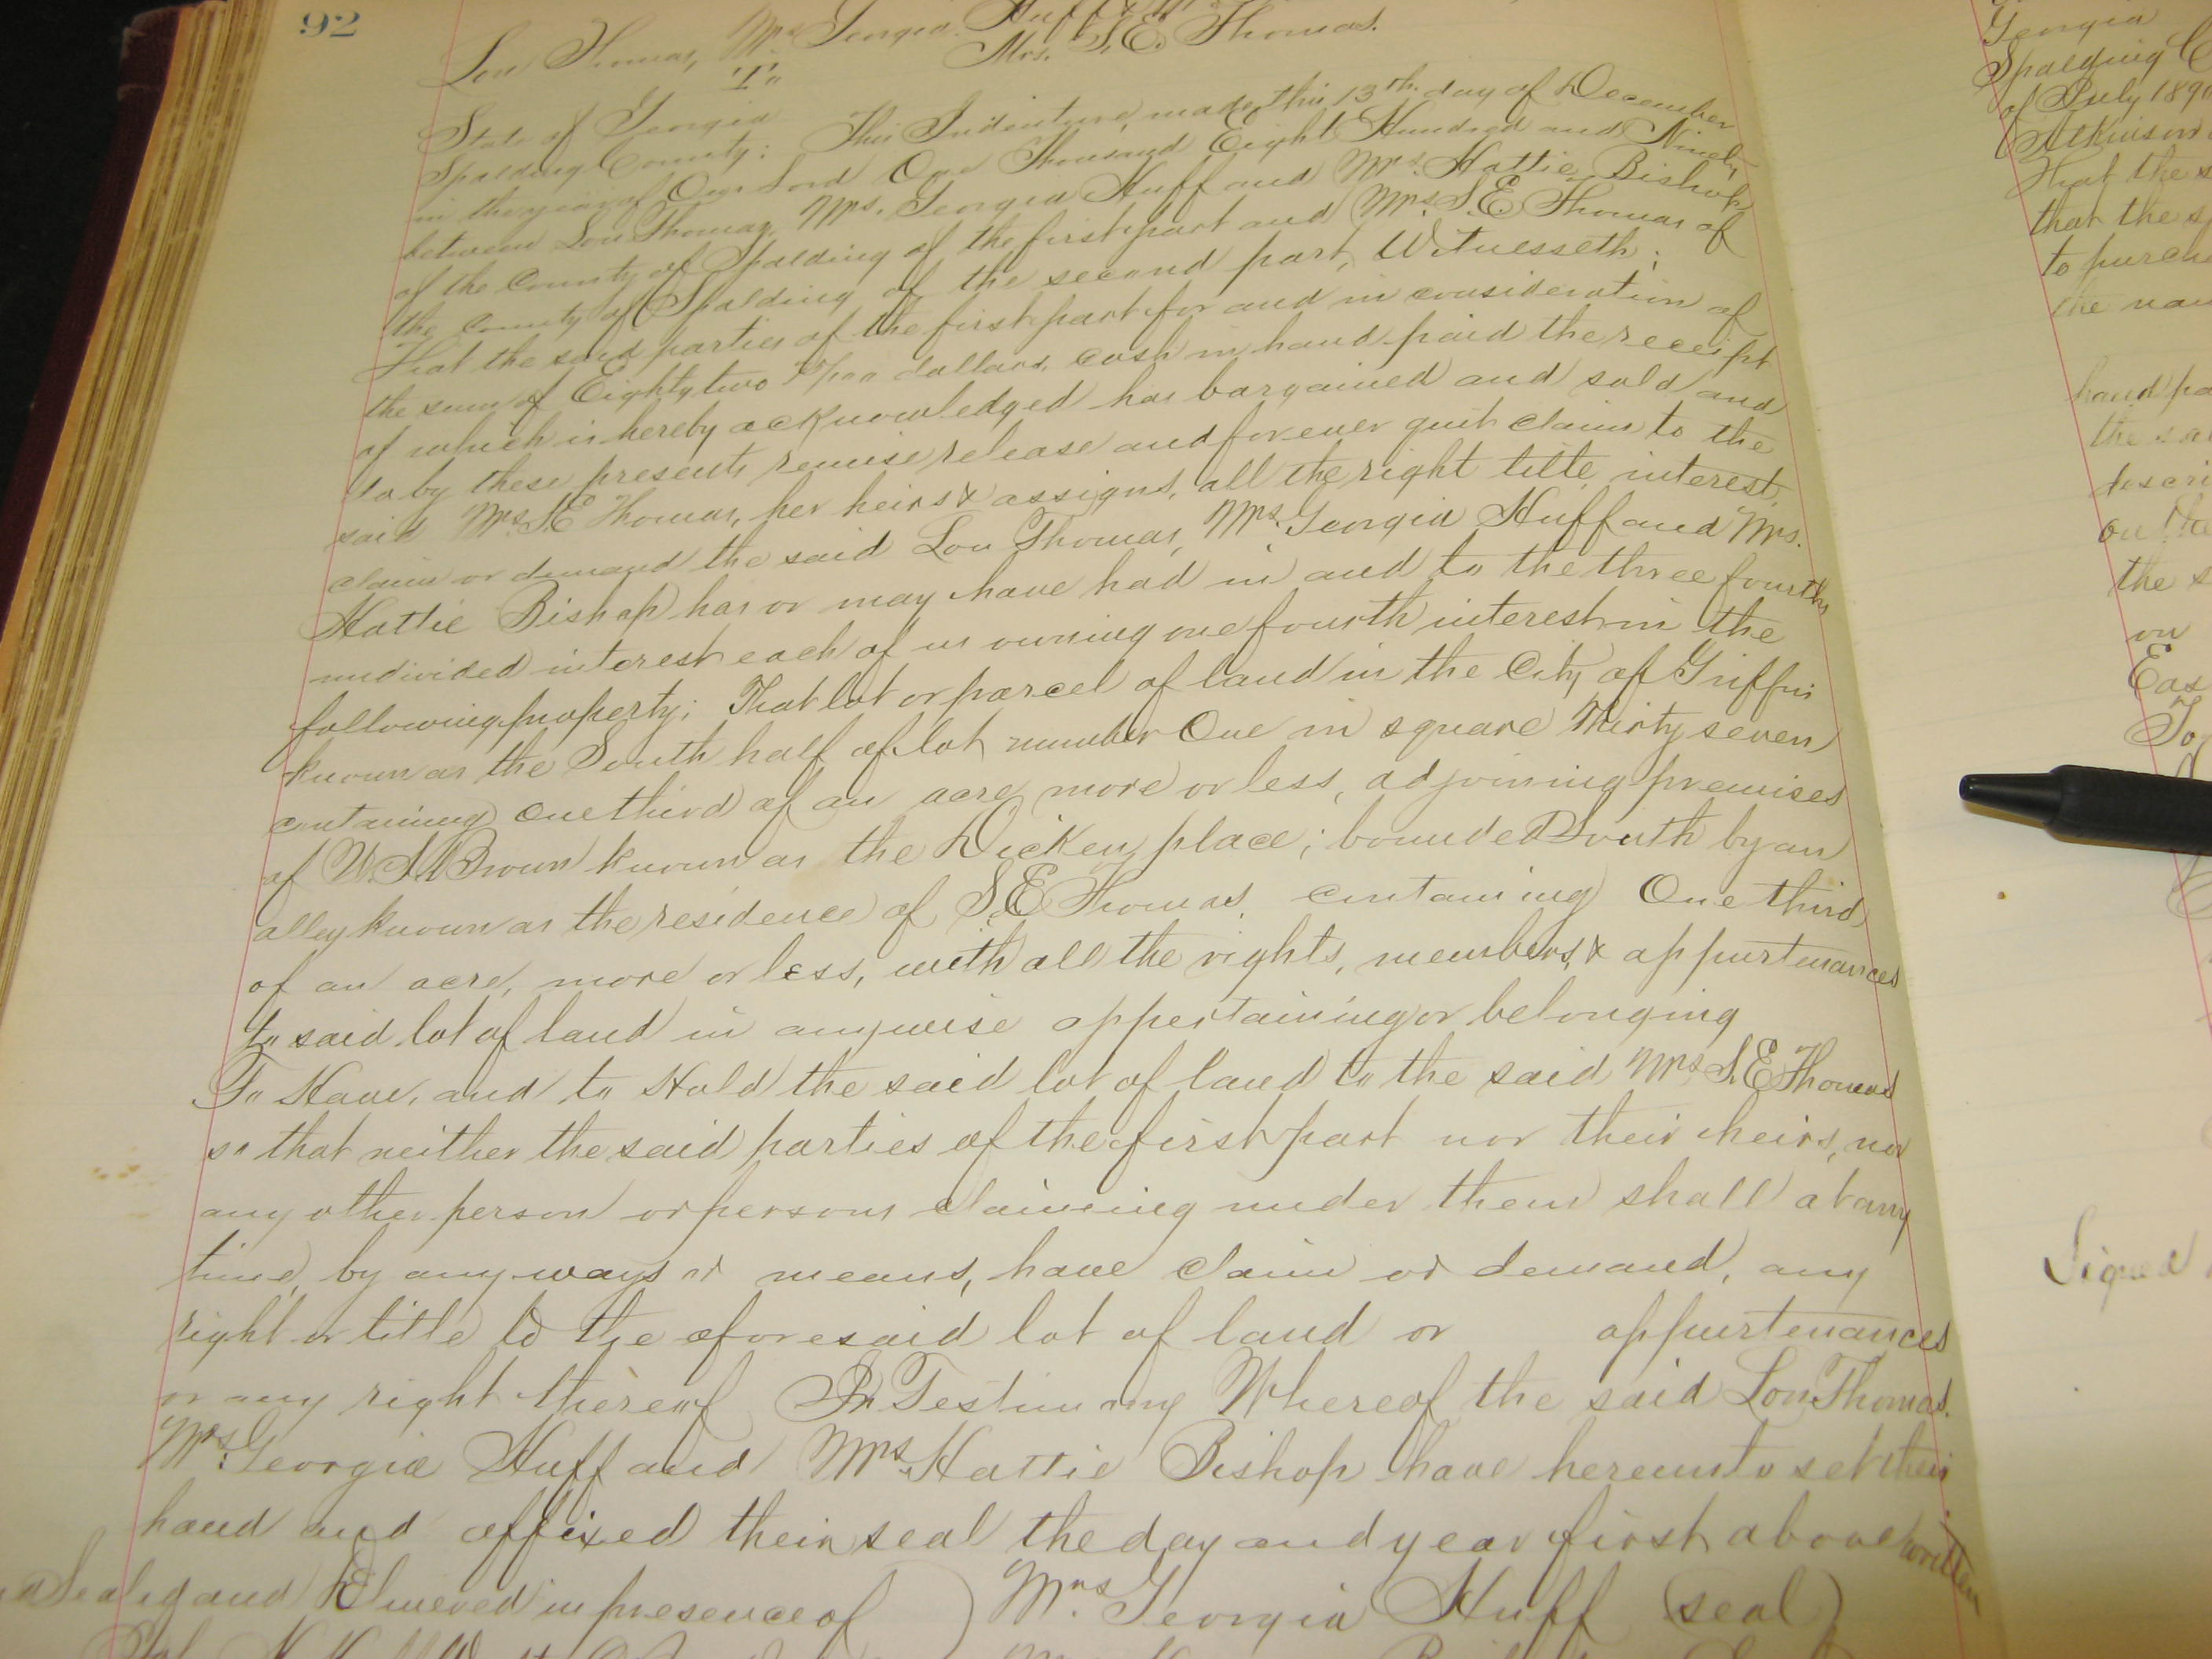 92
Lon Thomas, Mrs Georgia Huff &
To
Mrs. S. E. Thomas.
State of Georgia
Spalding County: This Indenture, made this 13th day of December
in the year of Our Lord One Thousand Eight Hundred and Ninety
between Lon Thomas, Mrs. Georgia Huff and Mrs. Hattie Bishop
of the County of Spalding of the first part and Mrs. S. E. Thomas of
the County of Spalding of the second part, Witnesseth:
That the said parties of the first part for and in consideration of
the sum of Eighty two dollars, cash in hand paid the receipt
of which is hereby acknowledged has bargained and sold and
do by these presents remise release and forever quit claim to the
said Mrs. S. E Thomas, her heirs & assigns, all the right title, interest,
claim or demand the said Lon Thomas, Mrs. Georgia Huff and Mrs.
Hattie Bishop has or may have had in and to the three fourths
undivided interest each of us owning one fourth interest in the
following property; That lot or parcel of land in the City of Griffin
known as the South half of lot number One in square Thirty seven
containing one third of an acre more or less, adjoining premises
of Brown known as the Dicken place; bounded South by an
alley known as the residence of S. E Thomas, containing One third
of an acre, more or less, with all the rights, members, & appurtenances
to said lot of land in anywise appertaining or belonging
To Have, and to Hold the said lot of land to the said Mrs S. E Thomas
so that neither the said parties of the first part nor their heirs, nor
any other person or persons claiming under them shall at any
time, by any ways or means, have claim or demand, any
right or title to the aforesaid lot of land or appurtenances
or any right thereof In Testimony Whereof the said Lon Thomas.
Mrs. Georgia Huff and Mrs. Hattie Bishop have hereunto set their
hand and affixed their seal the day and year first above written
Sealed and Delivered in presence of ) Mrs. Georgia Huff (seal)
Georgia
Spalding
of July 1890
Atkinson
That the s
that the s
to purch
the nam
hand pa
the sa
descri
on the
the s
on
Eas
To
Signed